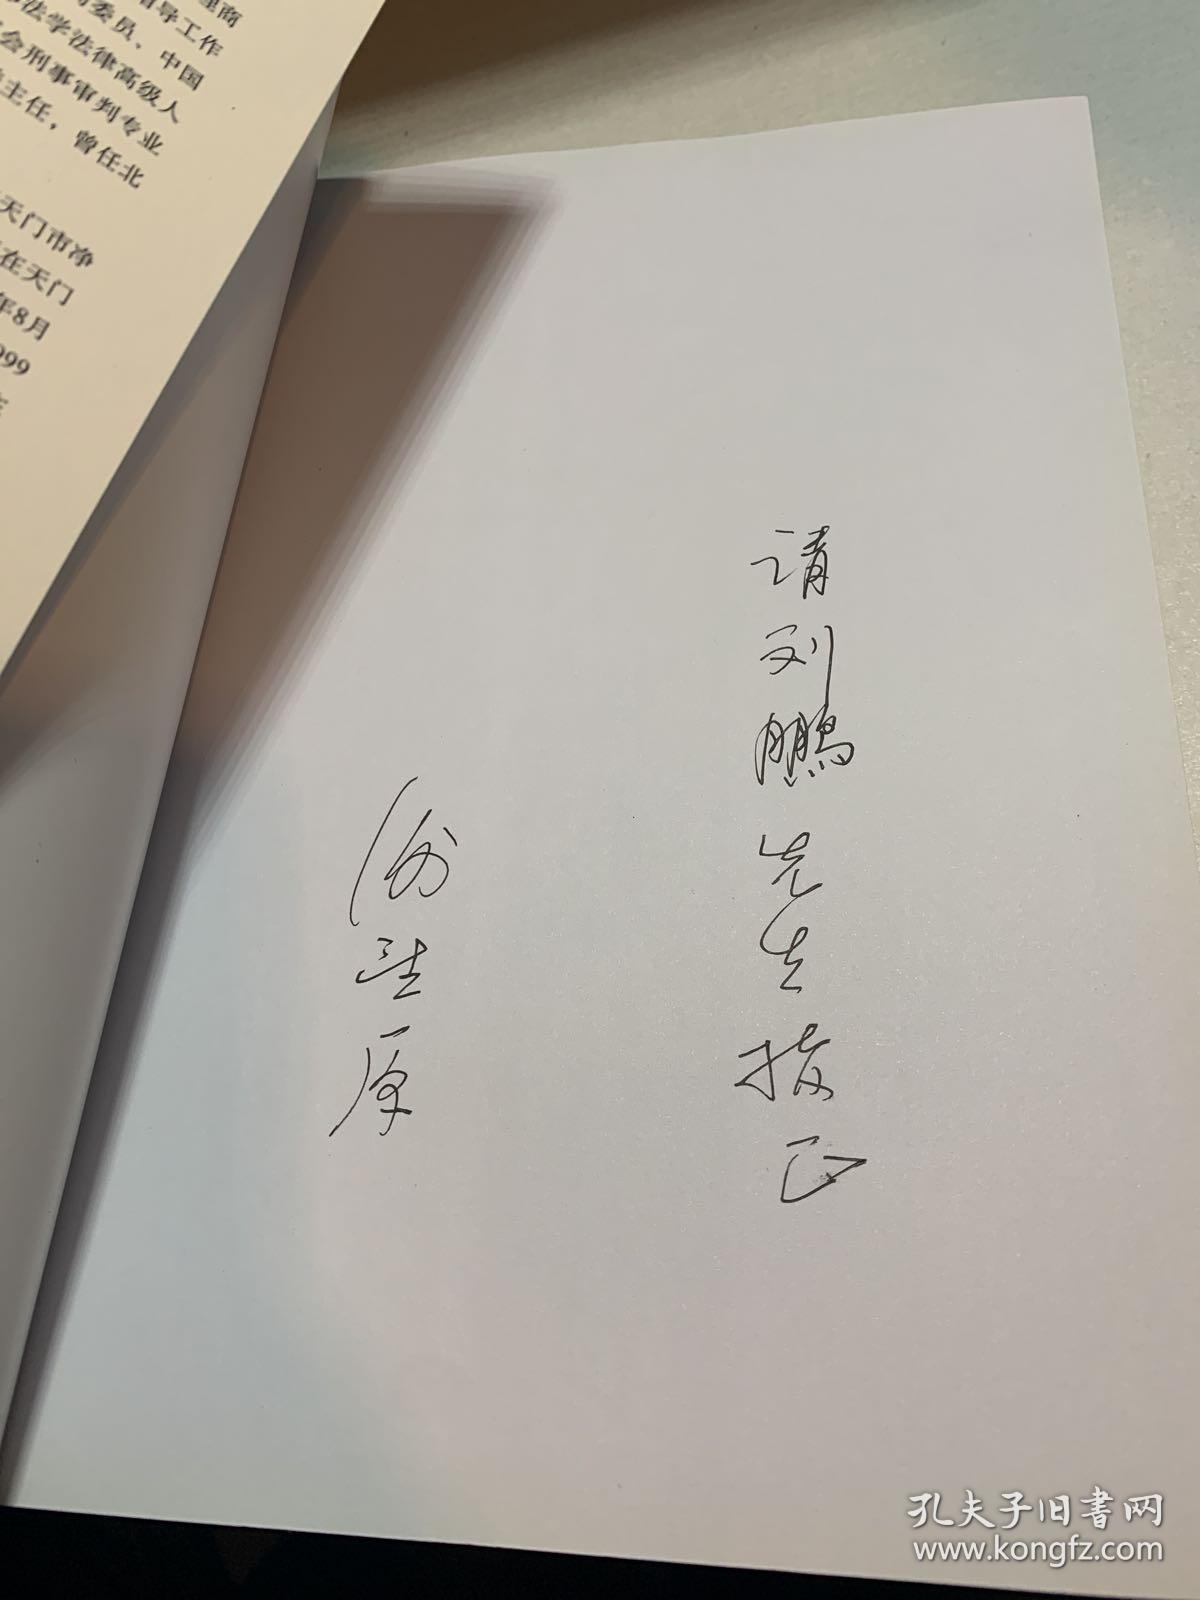 理商
指导工作
委员、中国
法学法律高级人
会刑事审判专业
主任，曾任北
天门市净
在天门
年8月
999
请刘鹏先生指正
原
孔夫子旧书网
www.kongfz.com